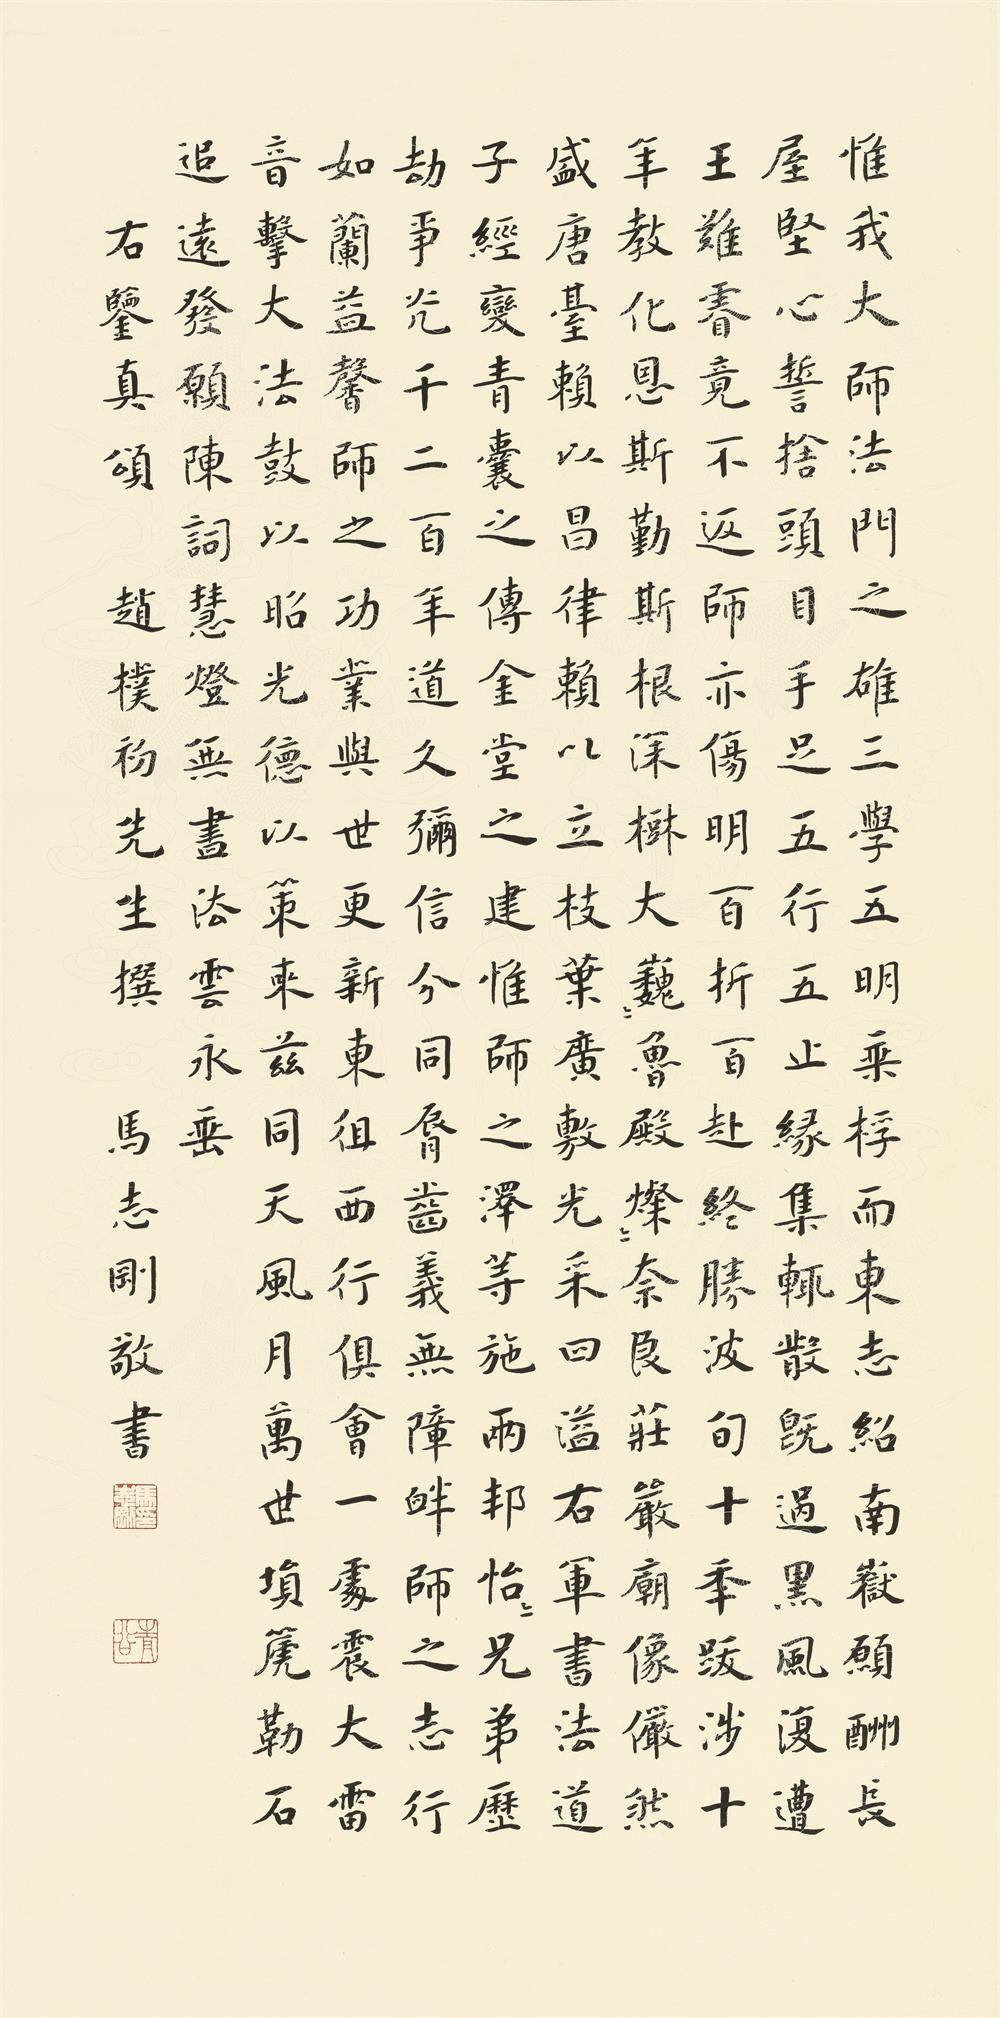 惟我大師法門之雄三學五明乘桴而東志紹南嶽願酬長
屋堅心誓捨頭目手足五行五止緣集輒散既過黑風復遭
王難睿竟不返師亦傷明百折百赴終勝波旬十年跋涉十
年教化恩斯勤斯根深樹大巍〻魯殿燦〻奈良莊嚴廟像儼然
盛唐臺賴以昌律賴以立枝葉廣敷光采四溢右軍書法道
子經變青囊之傳金堂之建惟師之澤等施兩邦怡〻兄弟歷
劫爭光千二百年道久彌信分同脣齒義無障畔師之志行
如蘭益馨師之功業與世更新東徂西行俱會一處震大雷
音擊大法鼓以昭光德以策來茲同天風月萬世塤篪勒石
追遠發願陳詞慧燈無盡法雲永垂
右鑒真頌 趙樸初先生撰 馬志剛敬書